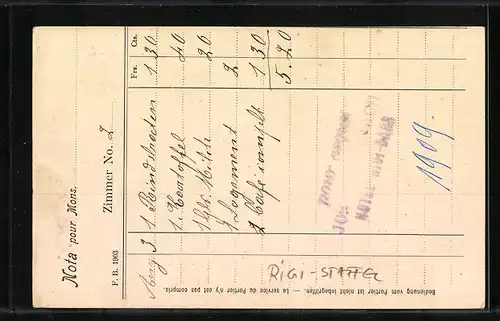 Nota pour Mons.
Zimmer No. 2
Frs. Cts.
3. 1 Rindsbraten 1 30
1 Kartoffel 40
1 Gls. Milch 20
1 Logement 2
1 Café complet 1 30
5. 20
pour acquit
HOTEL RIGI-BAHN
1909.
RIGI-STAFFEL
Bedienung vom Portier ist nicht inbegriffen. — Le service du Portier n'y est pas compris.
F. B. 1903